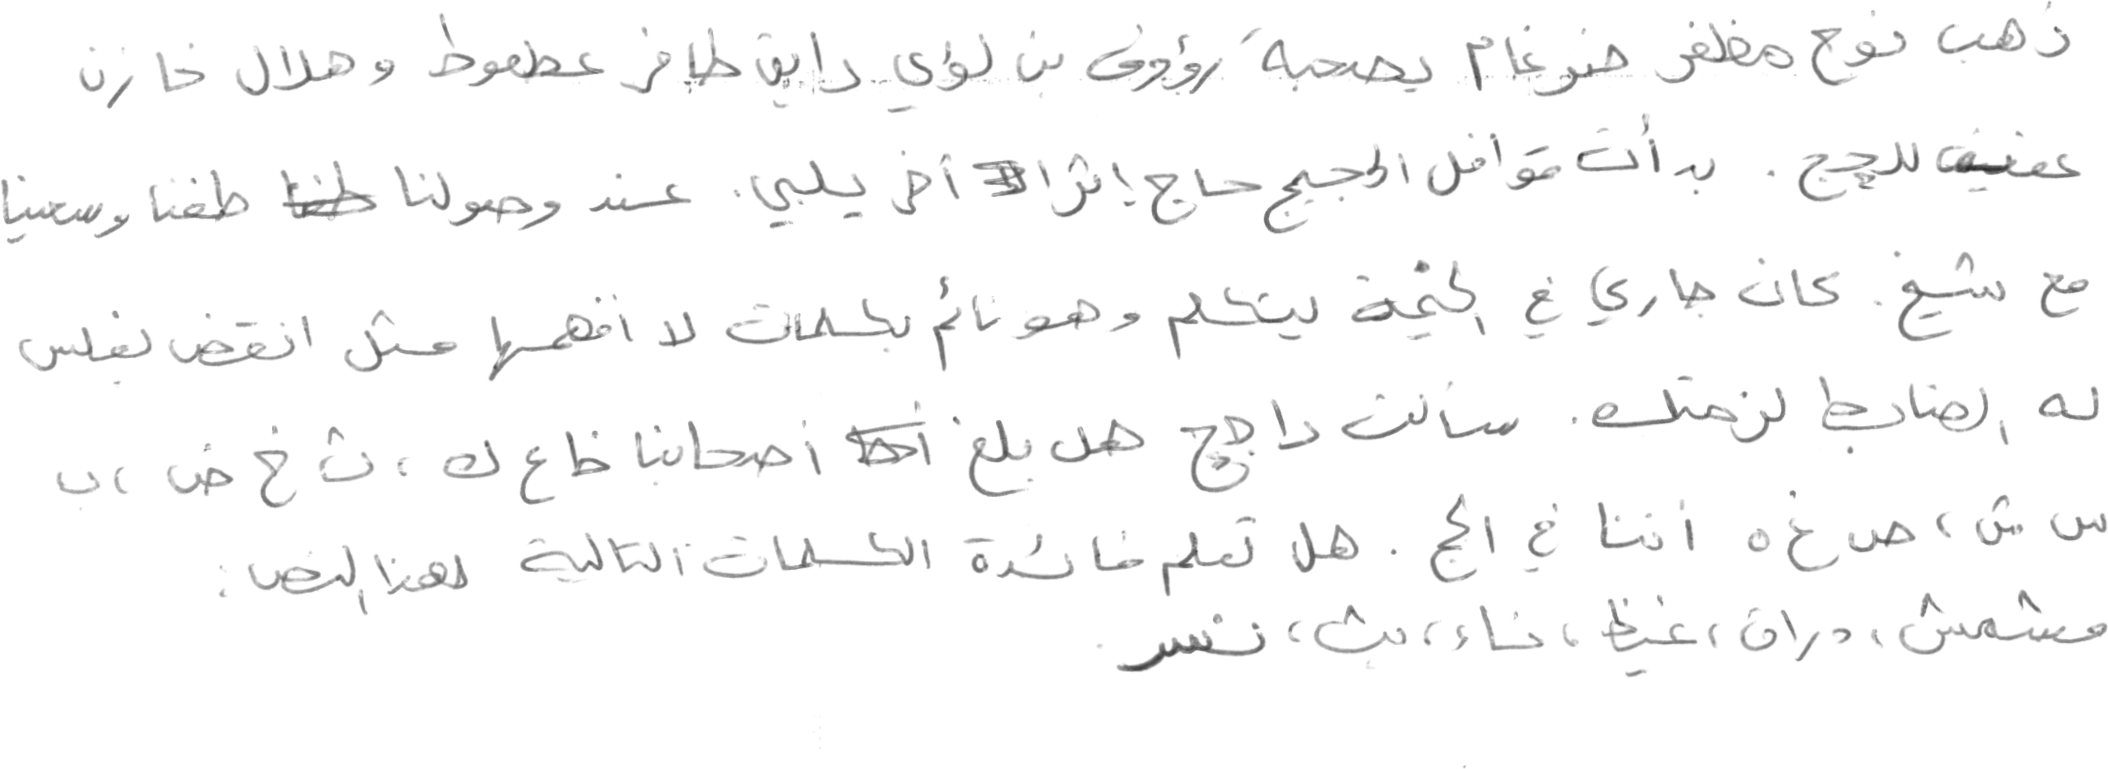 ذهب نوح مظفر ضرغام بصحبة رؤوف بن لؤي رايق ظافر عطعوط وهلال خازن
عفيف للحج. بدأت قوافل الحجيج حاج إثر أخر يلبي. عند وصولنا طفنا وسعينا
مع شيخ. كان جاري في الخيمة ليتكلم وهو نائم بكلمات لا أفهمها مثل انقض نفلس
له الضابط لزمتك. سألت راجح هل بلغ أصحابنا ظ ع ك، ث خ ض، ب
س ش، ص غ ه أننا في الحج. هل تعلم فائدة الكلمات التالية لهذا النص:
مشمش، دران، غيظ، ضاء، بث، نسر.